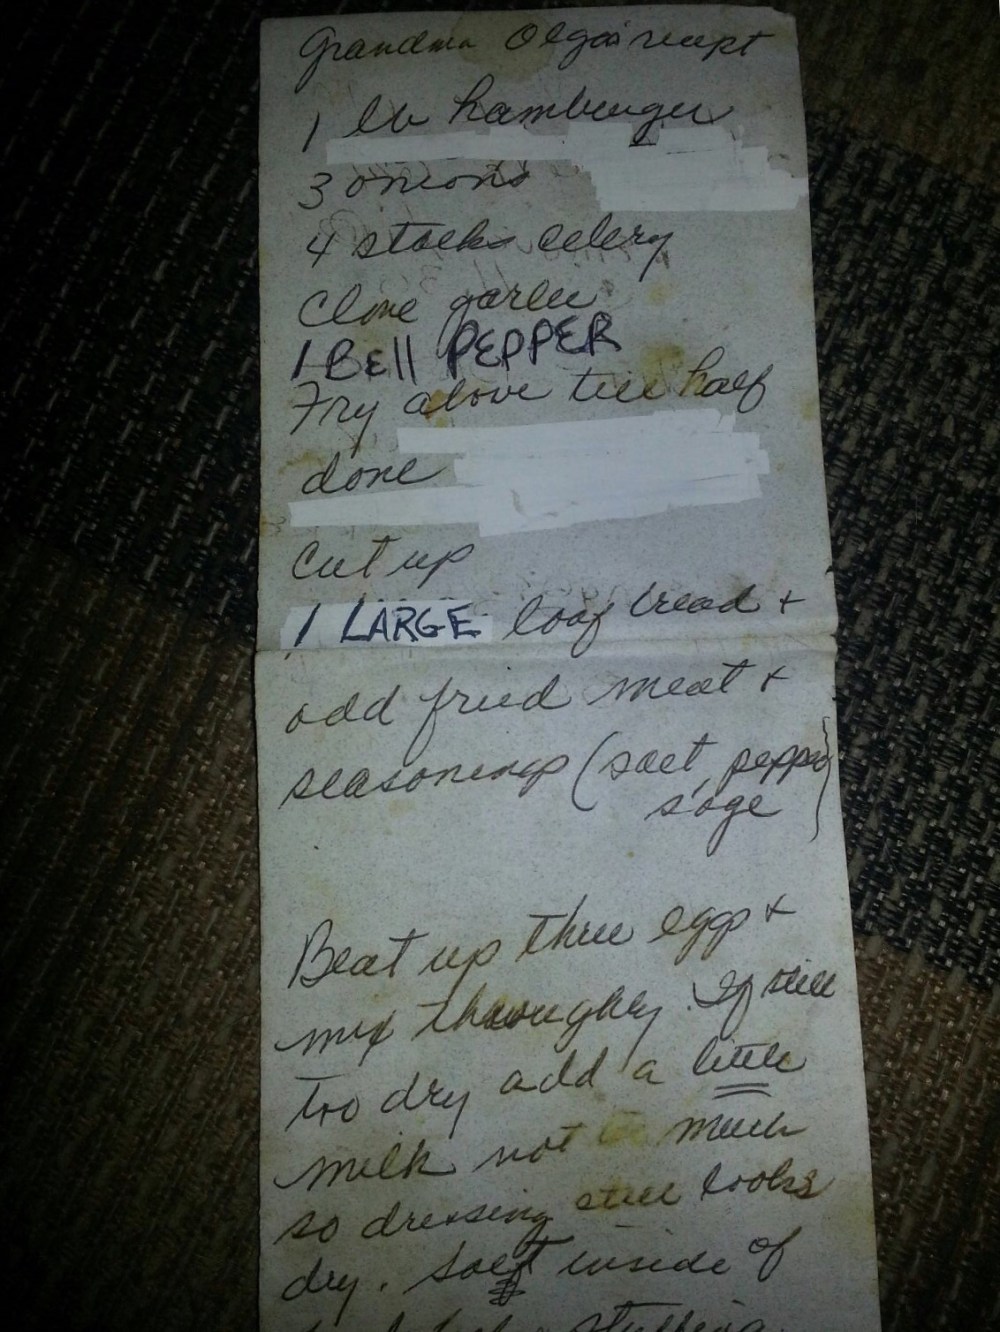 Grandma Olga's recipt
1 lb hamburger
3 onions
4 stocks celery
Clove garlic
1 BEll PEPPER
Fry above till half
done
Cut up
1 LARGE loaf bread +
add fried meat +
seasonings (salt, pepper
sage)
Beat up three eggs +
mix thoroughly. If still
too dry add a little
milk not too much
so dressing still looks
dry. Salt inside of
stuffing